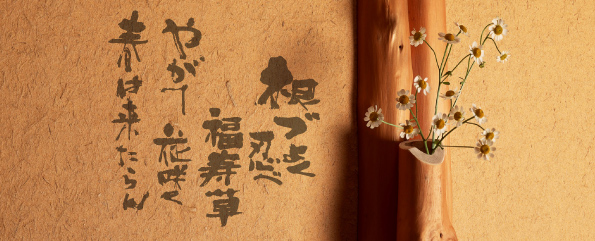 根づよく
忍べ
福寿草
やがて
花咲く
春は来たらん